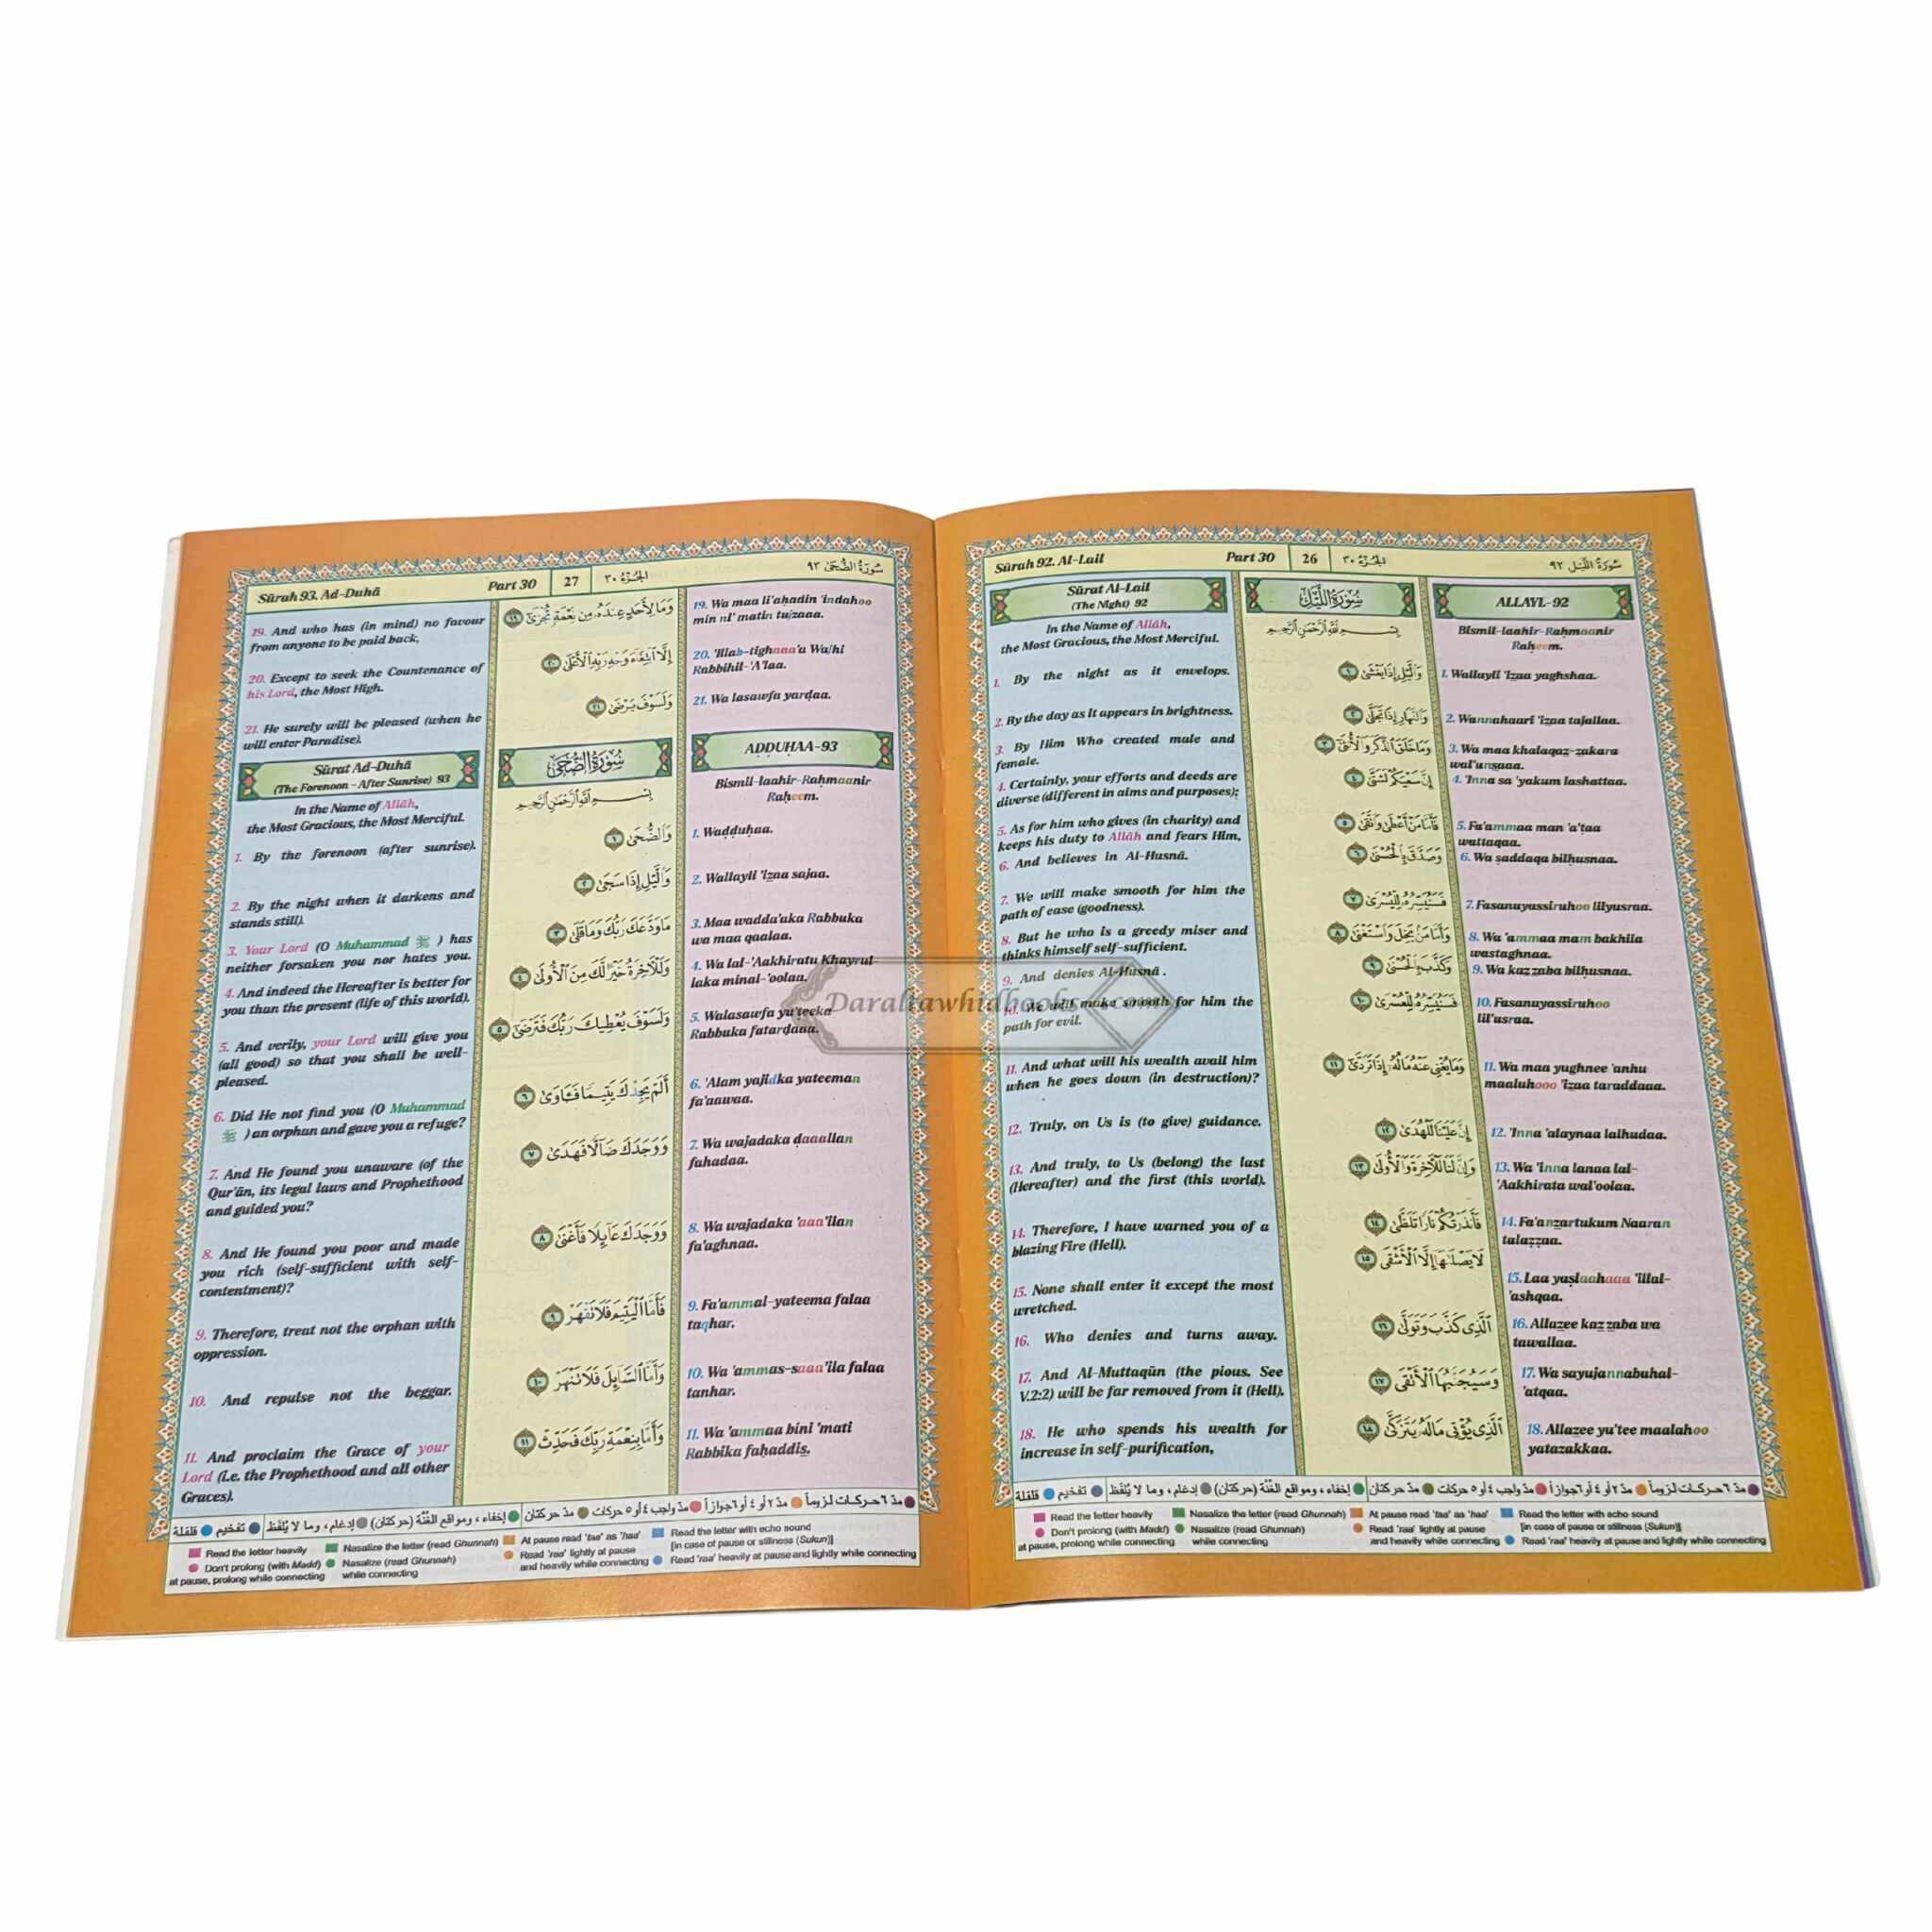 Sūrah 92. Al-Lail
Part 30
26
الجزء ٣٠
سورة الليل ٩٢
Sūrat Al-Lail
(The Night) 92
In the Name of Allāh,
the Most Gracious, the Most Merciful.
1. By the night as it envelops.
2. By the day as it appears in brightness.
3. By Him Who created male and
female.
4. Certainly, your efforts and deeds are
diverse (different in aims and purposes);
5. As for him who gives (in charity) and
keeps his duty to Allāh and fears Him,
6. And believes in Al-Husnā.
7. We will make smooth for him the
path of ease (goodness).
8. But he who is a greedy miser and
thinks himself self-sufficient.
9. And denies Al-Husnā .
10. We will make smooth for him the
path for evil.
11. And what will his wealth avail him
when he goes down (in destruction)?
12. Truly, on Us is (to give) guidance.
13. And truly, to Us (belong) the last
(Hereafter) and the first (this world).
14. Therefore, I have warned you of a
blazing Fire (Hell).
15. None shall enter it except the most
wretched.
16. Who denies and turns away.
17. And Al-Muttaqūn (the pious. See
V.2:2) will be far removed from it (Hell).
18. He who spends his wealth for
increase in self-purification,
سورة الليل
بسم الله الرحمن الرحيم
والليل إذا يغشى ١
والنهار إذا تجلى ٢
وما خلق الذكر والأنثى ٣
إن سعيكم لشتى ٤
فأما من أعطى واتقى ٥
وصدق بالحسنى ٦
فسنيسره لليسرى ٧
وأما من بخل واستغنى ٨
وكذب بالحسنى ٩
فسنيسره للعسرى ١٠
وما يغني عنه ماله إذا تردى ١١
إن علينا للهدى ١٢
وإن لنا للآخرة والأولى ١٣
فأنذرتكم نارا تلظى ١٤
لا يصلاها إلا الأشقى ١٥
الذي كذب وتولى ١٦
وسيجنبها الأتقى ١٧
الذي يؤتي ماله يتزكى ١٨
ALLAYL-92
Bismil-laahir-Raḥmaanir
Raḥeem.
1. Wallayli 'izaa yaghshaa.
2. Wannahaari 'izaa tajallaa.
3. Wa maa khalaqaz-zakara
wal'unsaaa.
4. 'Inna sa 'yakum lashattaa.
5. Fa'ammaa man 'a'ṭaa
wattaqaa.
6. Wa ṣaddaqa bilḥusnaa.
7. Fasanuyassiruhoo lilyusraa.
8. Wa 'ammaa mam bakhila
wastaghnaa.
9. Wa kazzaba bilḥusnaa.
10. Fasanuyassiruhoo
lil'usraa.
11. Wa maa yughnee 'anhu
maaluhooo 'izaa taraddaaa.
12. 'Inna 'alaynaa lalhudaa.
13. Wa 'inna lanaa lal-
'Aakhirata wal'oolaa.
14. Fa'anzartukum Naaran
talaẓẓaa.
15. Laa yaṣlaahaaa 'illal-
'ashqaa.
16. Allazee kazzaba wa
tawallaa.
17. Wa sayujannabuhal-
'atqaa.
18. Allazee yu'tee maalahoo
yatazakkaa.
مدّ ٦ حركات لزوماً مدّ ٢ أو ٤ أو ٦ جوازاً مدّ واجب ٤ أو ٥ حركات مدّ حركتان إخفاء، ومواقع الغنّة (حركتان) إدغام، وما لا يُلفَظ تفخيم قلقلة
Read the letter heavily Nasalize the letter (read Ghunnah) At pause read 'taa' as 'haa' Read the letter with echo sound
Don't prolong (with Madd) Nasalize (read Ghunnah) Read 'raa' lightly at pause [in case of pause or stillness (Sukun)]
at pause, prolong while connecting while connecting and heavily while connecting Read 'raa' heavily at pause and lightly while connecting
Sūrah 93. Ad-Duhā
Part 30
27
الجزء ٣٠
سورة الضحى ٩٣
19. And who has (in mind) no favour
from anyone to be paid back,
20. Except to seek the Countenance of
his Lord, the Most High.
21. He surely will be pleased (when he
will enter Paradise).
Sūrat Ad-Duhā
(The Forenoon - After Sunrise) 93
In the Name of Allāh,
the Most Gracious, the Most Merciful.
1. By the forenoon (after sunrise).
2. By the night when it darkens and
stands still).
3. Your Lord (O Muhammad ﷺ ) has
neither forsaken you nor hates you.
4. And indeed the Hereafter is better for
you than the present (life of this world).
5. And verily, your Lord will give you
(all good) so that you shall be well-
pleased.
6. Did He not find you (O Muhammad
ﷺ ) an orphan and gave you a refuge?
7. And He found you unaware (of the
Qur'ān, its legal laws and Prophethood
and guided you?
8. And He found you poor and made
you rich (self-sufficient with self-
contentment)?
9. Therefore, treat not the orphan with
oppression.
10. And repulse not the beggar.
11. And proclaim the Grace of your
Lord (i.e. the Prophethood and all other
Graces).
وما لأحد عنده من نعمة تجزى ١٩
إلا ابتغاء وجه ربه الأعلى ٢٠
ولسوف يرضى ٢١
سورة الضحى
بسم الله الرحمن الرحيم
والضحى ١
والليل إذا سجى ٢
ما ودعك ربك وما قلى ٣
وللآخرة خير لك من الأولى ٤
ولسوف يعطيك ربك فترضى ٥
ألم يجدك يتيما فآوى ٦
ووجدك ضالا فهدى ٧
ووجدك عائلا فأغنى ٨
فأما اليتيم فلا تقهر ٩
وأما السائل فلا تنهر ١٠
وأما بنعمة ربك فحدث ١١
19. Wa maa li'aḥadin 'indahoo
min ni' matin tujzaaa.
20. 'Illab-tighaaa'a Wajhi
Rabbihil-'A'laa.
21. Wa lasawfa yarḍaa.
ADDUḤAA-93
Bismil-laahir-Raḥmaanir
Raḥeem.
1. Waḍḍuḥaa.
2. Wallayli 'izaa sajaa.
3. Maa wadda'aka Rabbuka
wa maa qaalaa.
4. Wa lal-'Aakhiratu Khayrul-
laka minal-'oolaa.
5. Walasawfa yu'teeka
Rabbuka fatarḍaaa.
6. 'Alam yajidka yateeman
fa'aawaa.
7. Wa wajadaka ḍaaallan
fahadaa.
8. Wa wajadaka 'aaa'ilan
fa'aghnaa.
9. Fa'ammal-yateema falaa
taqhar.
10. Wa 'ammas-saaa'ila falaa
tanhar.
11. Wa 'ammaa bini 'mati
Rabbika faḥaddis.
مدّ ٦ حركات لزوماً مدّ ٢ أو ٤ أو ٦ جوازاً مدّ واجب ٤ أو ٥ حركات مدّ حركتان إخفاء، ومواقع الغنّة (حركتان) إدغام، وما لا يُلفَظ تفخيم قلقلة
Read the letter heavily Nasalize the letter (read Ghunnah) At pause read 'taa' as 'haa' Read the letter with echo sound
Don't prolong (with Madd) Nasalize (read Ghunnah) Read 'raa' lightly at pause [in case of pause or stillness (Sukun)]
at pause, prolong while connecting while connecting and heavily while connecting Read 'raa' heavily at pause and lightly while connecting
Daraltawhidbooks.com